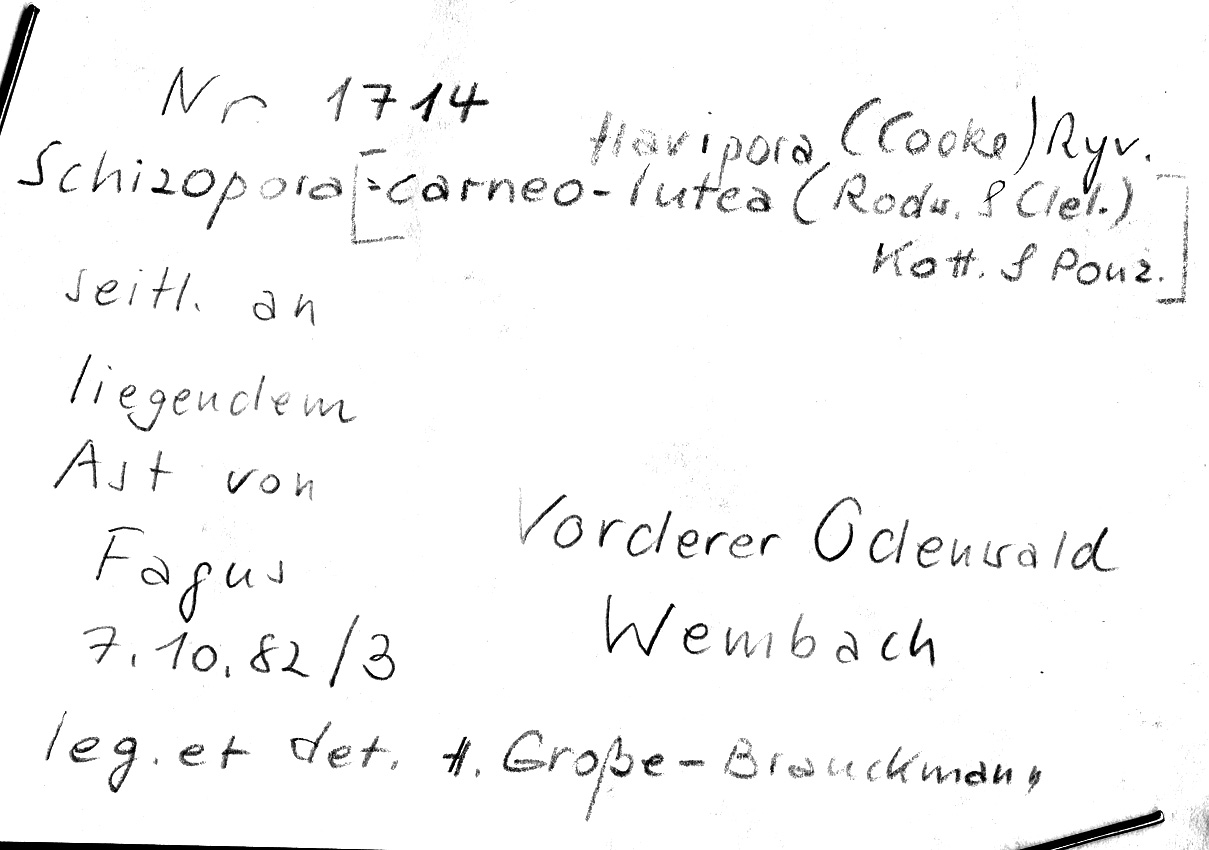 Nr 1714
Schizopora flavipora (Cooke) Ryv.
[= carneo-lutea (Rodw. & Clel.)
Kott. & Pouz.]
seitl. an
liegendem
Ast von
Fagus
7.10.82/3
Vorderer Odenwald
Wembach
leg. et det. H. Große-Brauckmann